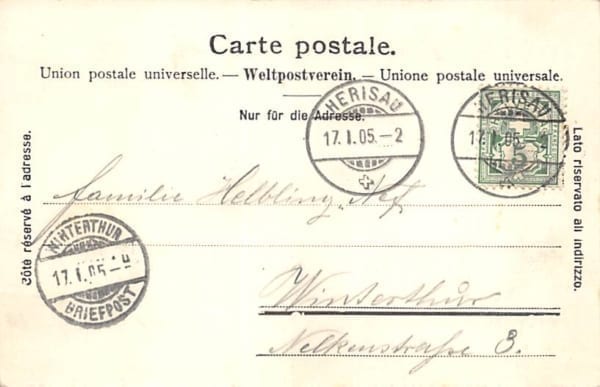 Carte postale.
Union postale universelle. — Weltpostverein. — Unione postale universale.
Nur für die Adresse.
Côté réservé à l'adresse.
Lato riservato all indirizzo.
HERISAU
17.I.05.-2
HERISAU
17.I.05.
5
Familie Helbling-Nef
WINTERTHUR
17.I.05.-
BRIEFPOST
Winterthur
Nelkenstraße 3.